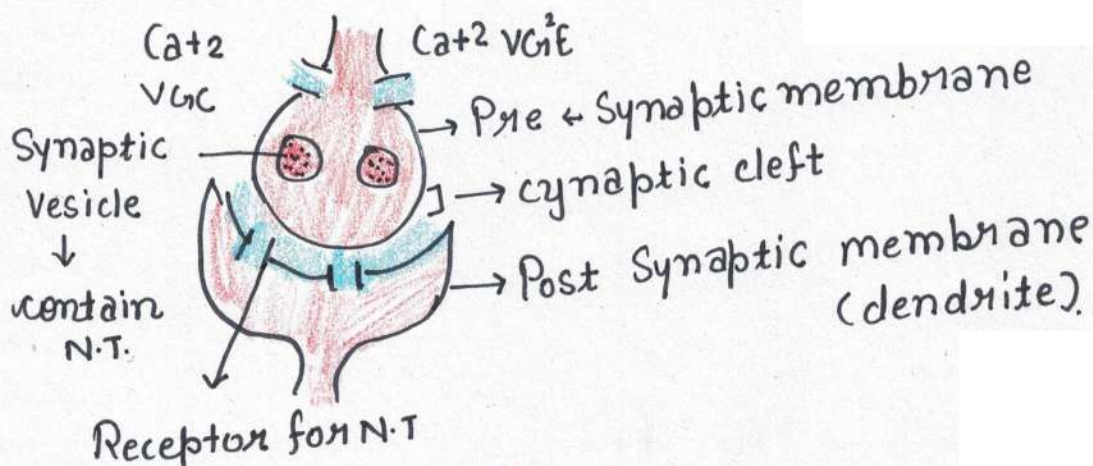 Ca+2
VGC
Ca+2 VG²E
Synaptic
vesicle
↓
contain
N.T.
→ Pre ← Synaptic membrane
→ cynaptic cleft
→ Post Synaptic membrane
(dendrite).
Receptor for N.T